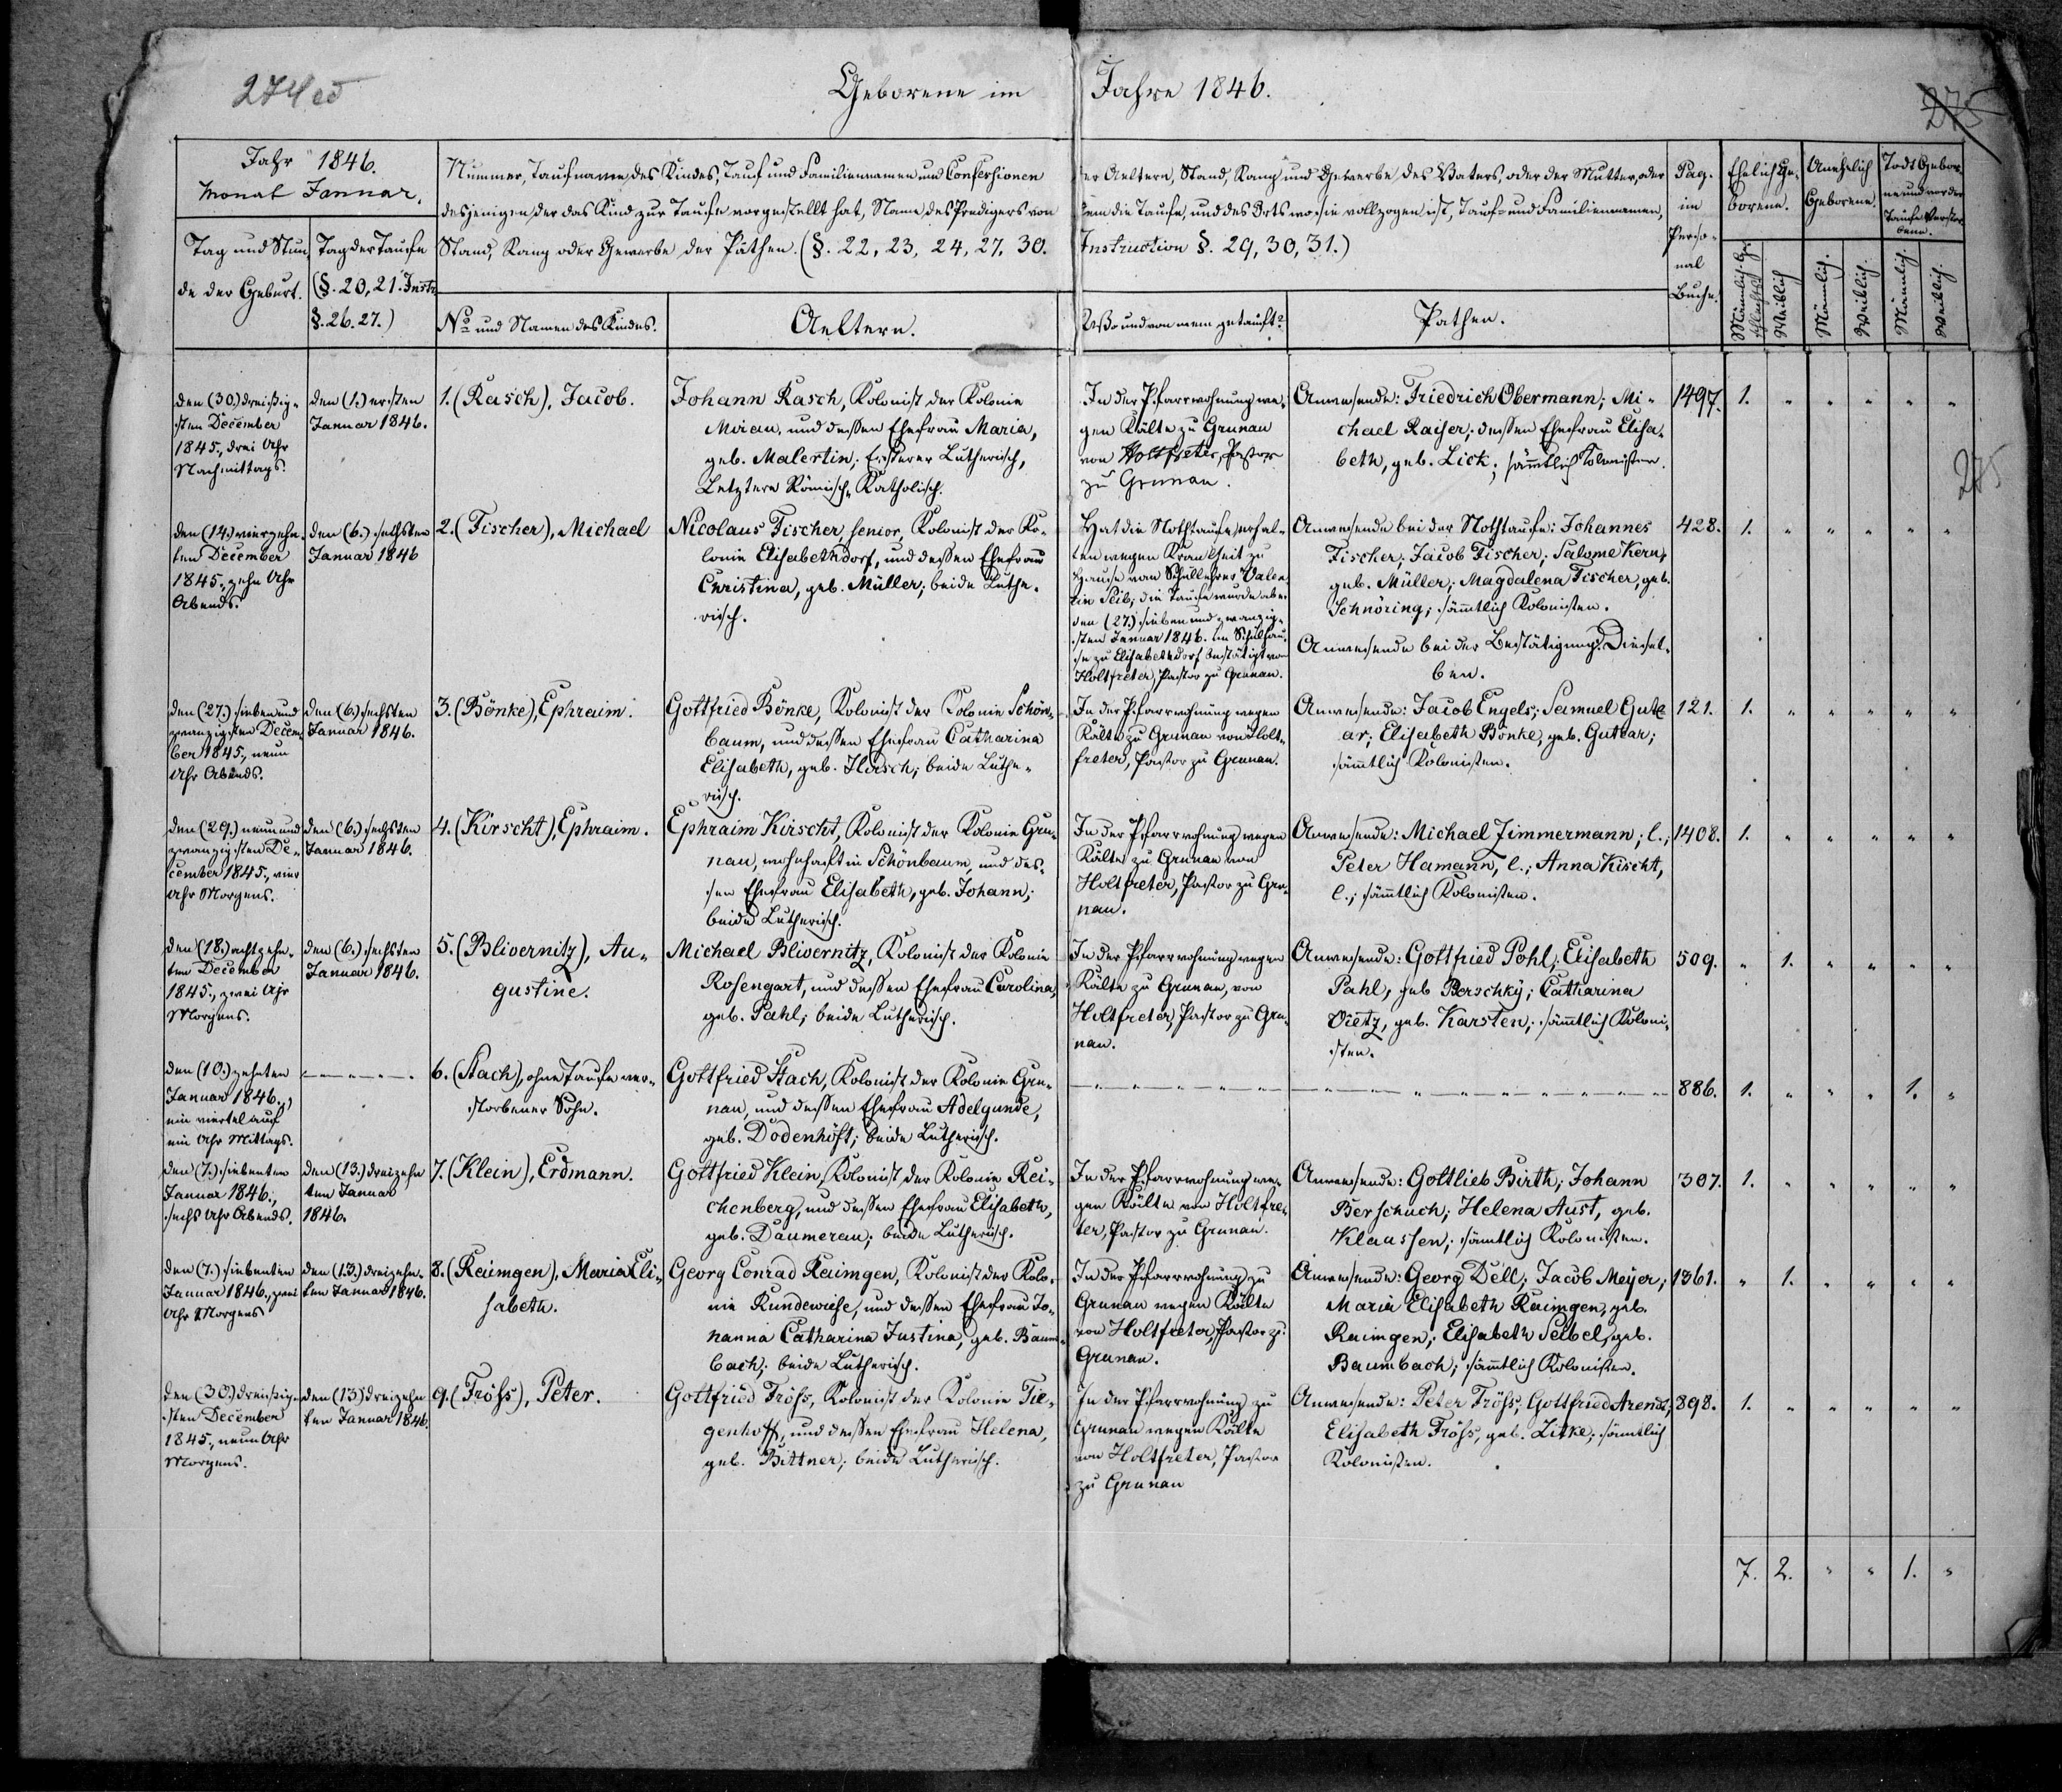 274
Geborene im Jahre 1846.
275
Jahr 1846.
Monat Januar.
Tag und Stun
de der Geburt.
Tag der Taufe
(§. 20, 21. Instr.
§. 26. 27.)
Nummer, Taufname des Kindes, Tauf und Familiennamen und Confessionen
der Aeltern, Stand, Rang und Gewerbe des Vaters, oder der Mutter, oder
desjenigen der das Kind zur Taufe vorgestellt hat, Name des Predigers von
dem die Taufe, und des Orts wo sie vollzogen ist, Tauf- und Familiennamen,
Stand, Rang oder Gewerbe der Pathen. (§. 22, 23, 24, 27, 30.
Instruction §. 29, 30, 31.)
No und Namen des Kindes.
Aeltern.
Wo und von wem getauft?
Pathen.
Pag.
im
Perso-
nal
Buche.
Ehelich Ge-
borene.
Unehelich
Geborene.
Todt Gebor-
ne und vor der
Taufe Verstor-
bene.
Männlich. Ge-
schlechts
Weiblich
Männlich.
Weiblich.
Männlich.
Weiblich.
den (30.) dreißig-
sten December
1845., drei Uhr
Nachmittags.
den (1.) ersten
Januar 1846.
1. (Rasch), Jacob.
Johann Rasch, Kolonist der Kolonie
Mirau, und dessen Ehefrau Maria,
geb. Malertin; Ersterer Lutherisch,
Letztere Römisch-Katholisch.
In der Pfarrwohnung we-
gen Kälte zu Grunau
von Holtfreter, Pastor
zu Grunau.
Anwesende: Friedrich Obermann; Mi-
chael Raiser; dessen Ehefrau Elisa-
beth, geb. Lick; sämtlich Kolonisten.
1497. 1. " " " " "
275
den (14.) vierzehn-
ten December
1845., zehn Uhr
Abends.
den (6.) sechsten
Januar 1846
2. (Fischer), Michael
Nicolaus Fischer, senior, Kolonist der Ko-
lonie Elisabethdorf, und dessen Ehefrau
Christina, geb. Müller; beide Luthe-
risch.
Hat die Nothtaufe erhal-
ten wegen Krankheit zu
Hause vom Schullehrer Valen-
tin Seib; die Taufe wurde aber
den (27.) sieben und zwanzig-
sten Januar 1846. im Schulhau-
se zu Elisabethdorf bestätigt von
Holtfreter, Pastor zu Grunau.
Anwesende bei der Nothtaufe: Johannes
Fischer; Jacob Fischer; Salome Kern,
geb. Müller; Magdalena Fischer, geb.
Schnöring; sämtlich Kolonisten.
Anwesende bei der Bestätigung: Diesel-
ben.
428. 1. " " " " "
den (27.) sieben und
zwanzigsten Decem-
ber 1845., neun
Uhr Abends.
den (6.) sechsten
Januar 1846.
3. (Bönke), Ephraim.
Gottfried Bönke, Kolonist der Kolonie Schön-
baum, und dessen Ehefrau Catharina
Elisabeth, geb. Hirsch; beide Luthe-
risch.
In der Pfarrwohnung wegen
Kälte zu Grunau von Holt-
freter, Pastor zu Grunau.
Anwesende: Jacob Engels; Samuel Gutz
ar; Elisabeth Bönke, geb. Gutzar;
sämtlich Kolonisten.
121. 1. " " " " "
den (29.) neun und
zwanzigsten De-
cember 1845., vier
Uhr Morgens.
den (6.) sechsten
Januar 1846.
4. (Kirscht), Ephraim.
Ephraim Kirscht, Kolonist der Kolonie Gru-
nau, wohnhaft in Schönbaum, und des-
sen Ehefrau Elisabeth, geb. Johann;
beide Lutherisch.
In der Pfarrwohnung wegen
Kälte zu Grunau von
Holtfreter, Pastor zu Gru-
nau.
Anwesende: Michael Zimmermann; l.;
Peter Hamann, l.; Anna Kirscht,
l.; sämtlich Kolonisten.
1408. 1. " " " " "
den (18.) achtzehn-
ten December
1845., zwei Uhr
Morgens.
den (6.) sechsten
Januar 1846.
5. (Bliwernitz), Au-
gustine.
Michael Bliwernitz, Kolonist der Kolonie
Rosengart, und dessen Ehefrau Carolina,
geb. Pahl; beide Lutherisch.
In der Pfarrwohnung wegen
Kälte zu Grunau, von
Holtfreter, Pastor zu Gru-
nau.
Anwesende: Gottfried Pohl; Elisabeth
Pahl, geb Berschky; Catharina
Dietz, geb. Karsten; sämtlich Koloni-
sten.
509. " 1. " " " "
den (10.) zehnten
Januar 1846.,
ein viertel auf
ein Uhr Mittags.
6. (Stach), ohne Taufe ver-
storbener Sohn.
Gottfried Stach, Kolonist der Kolonie Gru-
nau, und dessen Ehefrau Adelgunde,
geb. Dodenhöft; beide Lutherisch.
886. 1. " " " 1. "
den (7.) siebenten
Januar 1846.,
sechs Uhr Abends.
den (13.) dreizehn
ten Januar
1846.
7. (Klein), Erdmann.
Gottfried Klein, Kolonist der Kolonie Rei-
chenberg, und dessen Ehefrau Elisabeth,
geb. Daumerau; beide Lutherisch.
In der Pfarrwohnung we-
gen Kälte von Holtfre-
ter, Pastor zu Grunau.
Anwesende: Gottlieb Birth; Johann
Berschuch; Helena Aust, geb.
Klaassen; sämtlich Kolonisten.
307. 1. " " " " "
den (7.) siebenten
Januar 1846., zwei
Uhr Morgens
den (13.) dreizehn-
ten Januar 1846.
8. (Raimgen), Maria Eli-
sabeth.
Georg Conrad Raimgen, Kolonist der Kolo-
nie Rundewiese, und dessen Ehefrau Jo-
hanna Catharina Justina, geb. Baum-
bach; beide Lutherisch.
In der Pfarrwohnung zu
Grunau wegen Kälte
von Holtfreter, Pastor zu
Grunau.
Anwesende: Georg Dell; Jacob Meyer;
Maria Elisabeth Raimgen, geb.
Raimgen; Elisabeth Seibel, geb.
Baumbach; sämtlich Kolonisten.
1361. " 1. " " " "
den (30.) dreißig-
sten December
1845., neun Uhr
Morgens.
den (13.) dreizehn
ten Januar 1846.
9. (Fröhs), Peter.
Gottfried Fröhs, Kolonist der Kolonie Tie-
genhoff, und dessen Ehefrau Helena,
geb. Bittner; beide Lutherisch.
In der Pfarrwohnung zu
Grunau wegen Kälte
von Holtfreter, Pastor
zu Grunau
Anwesende: Peter Fröhs; Gottfried Arendt;
Elisabeth Fröhs, geb. Litke; sämtlich
Kolonisten.
898. 1. " " " " "
7. 2. " " 1. "